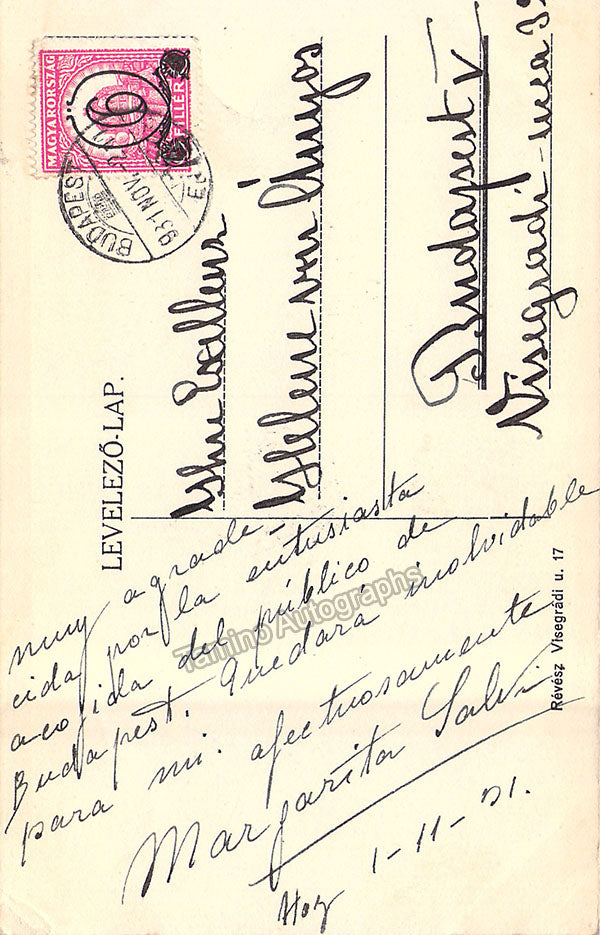 MAGYARORSZÁG
6
FILLÉR
BUDAPEST
931 NOV.
LEVELEZŐ-LAP.
Ihre Exellenz
Helene von Lányos
Budapest V
Visegrádi-utca 39
Révész Visegrádi u. 17
muy agrade-
cida por la entusiasta
acojida del público de
Budapest. Quedará inolvidable
para mi. afectuosamente
Margarita Salvi
Hoy 1-11-31.
Tamino Autographs